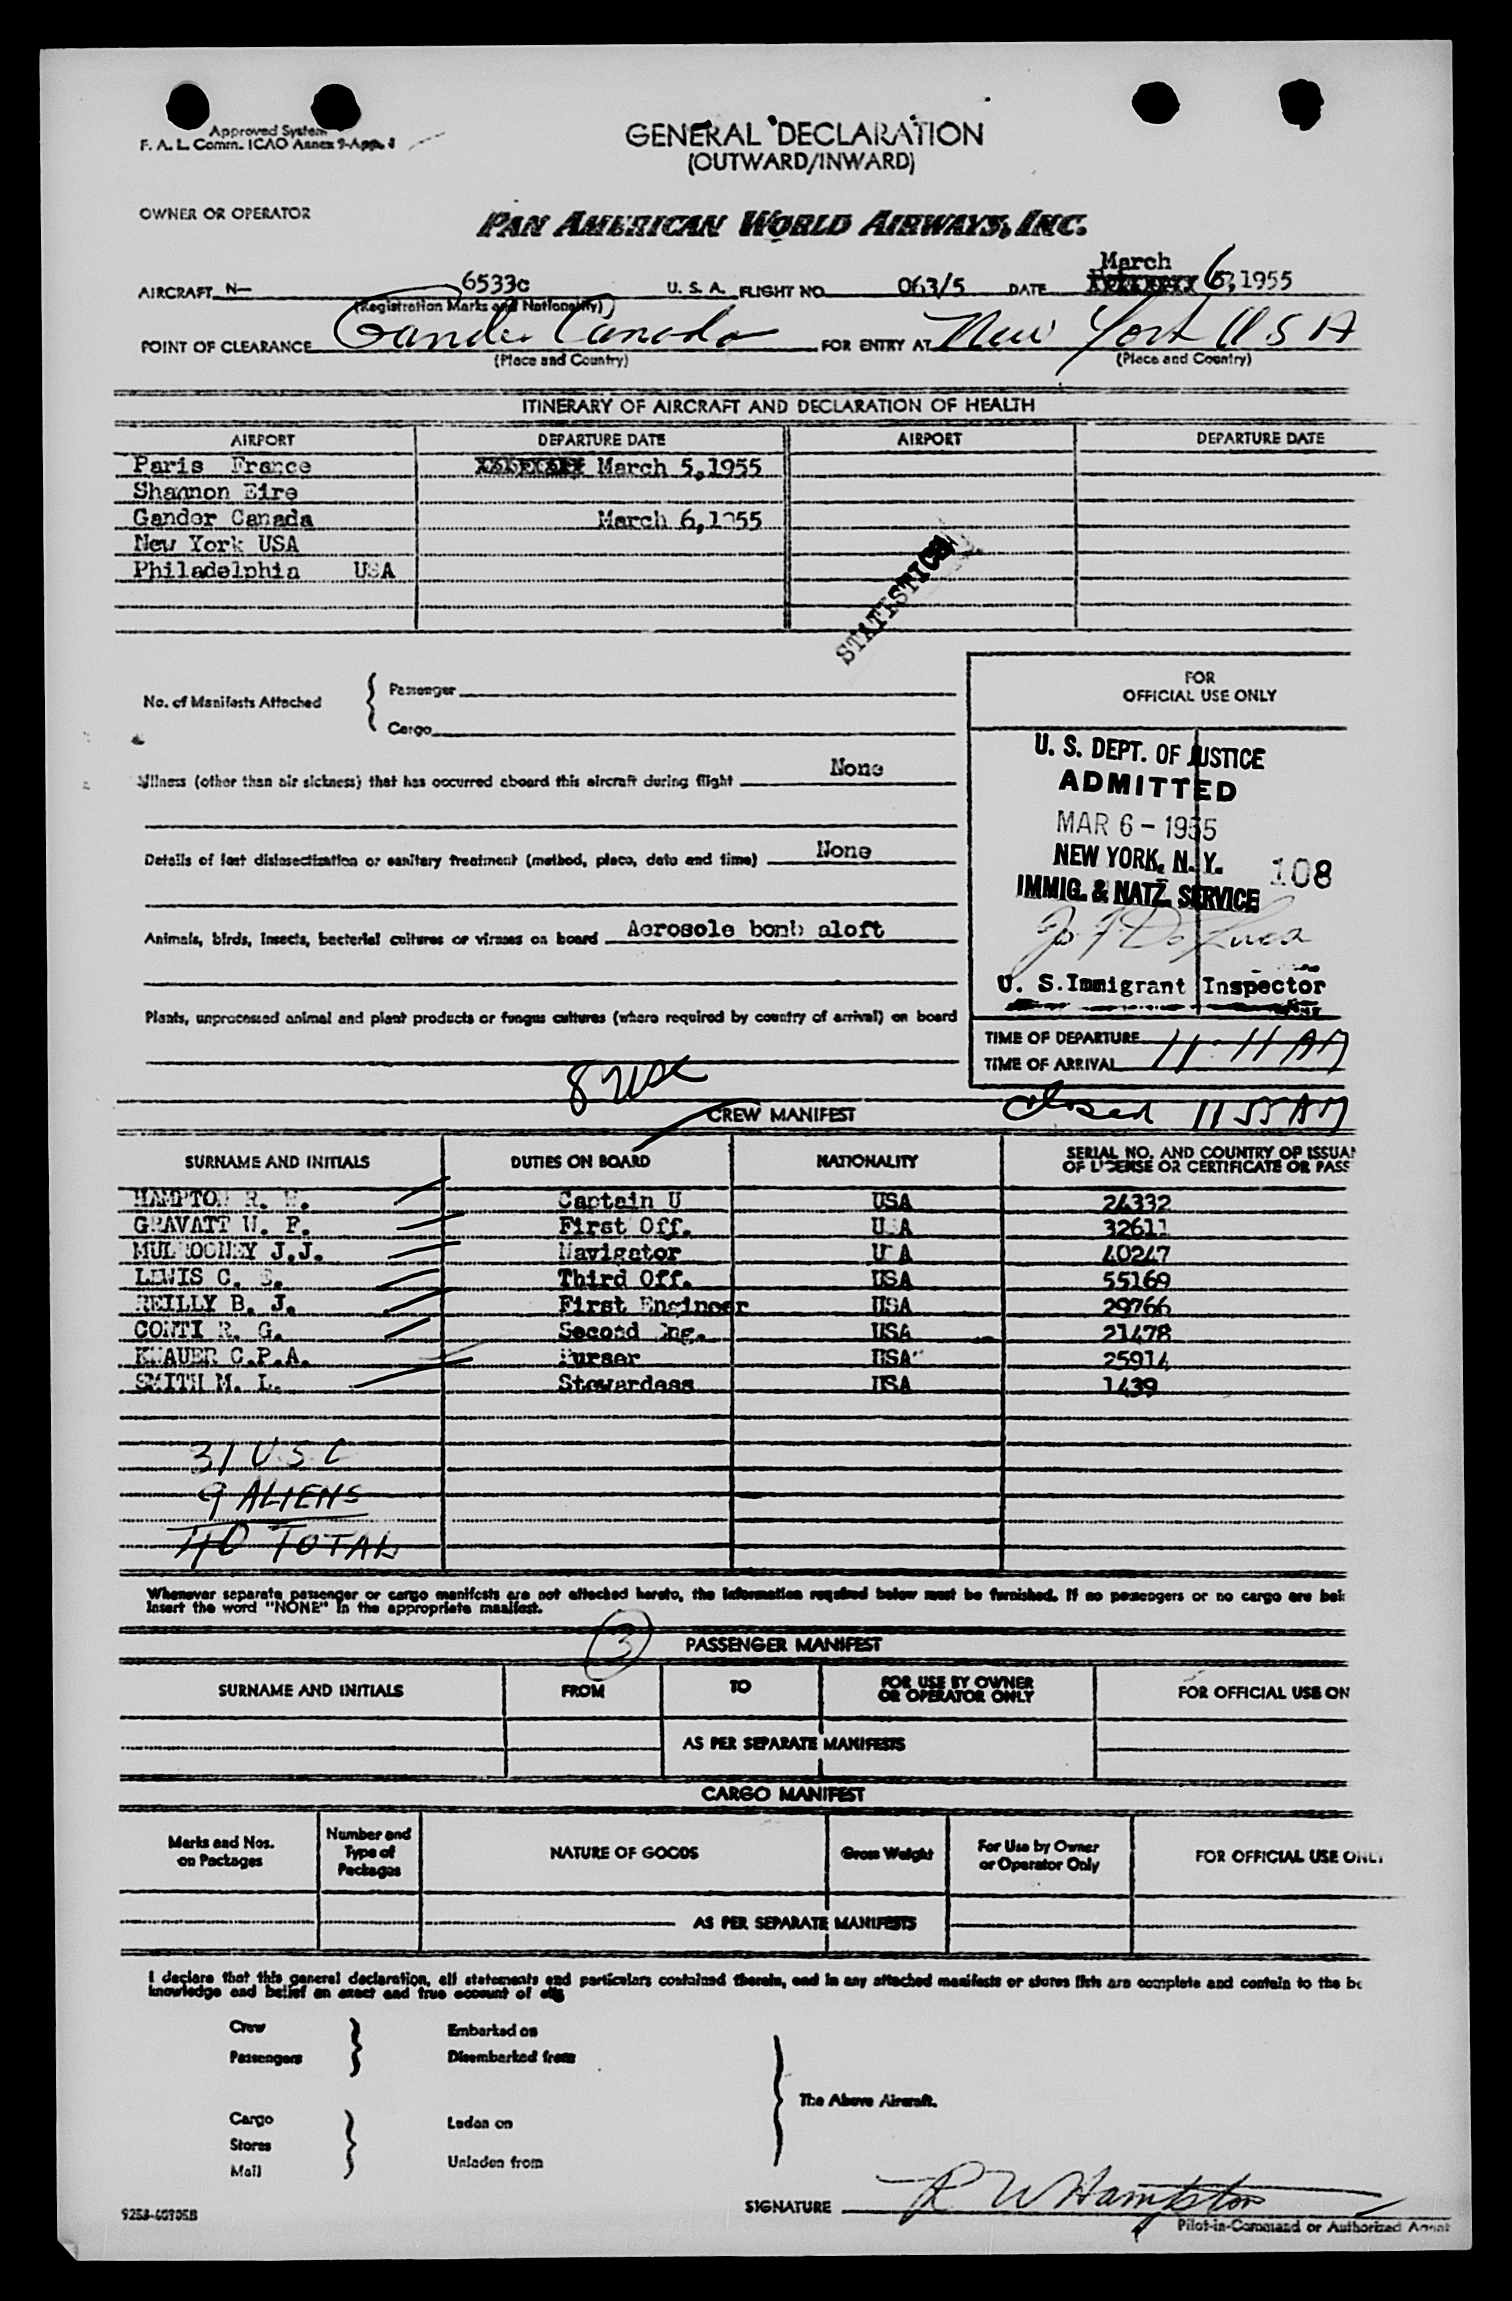 Approved System
F. A. L. Comm. ICAO Annex 9-App. 1
GENERAL DECLARATION
(OUTWARD/INWARD)
OWNER OR OPERATOR
PAN AMERICAN WORLD AIRWAYS, INC.
March 6
AIRCRAFT N- 6533c U. S. A. FLIGHT NO. 063/5 DATE 1955
(Registration Marks and Nationality)
POINT OF CLEARANCE Gander Canada FOR ENTRY AT New York USA
(Place and Country) (Place and Country)
ITINERARY OF AIRCRAFT AND DECLARATION OF HEALTH
AIRPORT DEPARTURE DATE AIRPORT DEPARTURE DATE
Paris France March 5,1955
Shannon Eire
Gander Canada March 6,1955
New York USA
Philadelphia USA
STATISTICAL
FOR
OFFICIAL USE ONLY
No. of Manifests Attached { Passenger
Cargo
U. S. DEPT. OF JUSTICE
ADMITTED
MAR 6 - 1955
NEW YORK, N. Y. 108
IMMIG. & NATZ. SERVICE
U. S. Immigrant Inspector
Illness (other than air sickness) that has occurred aboard this aircraft during flight None
Details of last disinsectization or sanitary treatment (method, place, date and time) None
Animals, birds, insects, bacterial cultures or viruses on board Aerosole bomb aloft
Plants, unprocessed animal and plant products or fungus cultures (where required by country of arrival) on board
TIME OF DEPARTURE
TIME OF ARRIVAL 11:11 AM
8 USC
closed 11 55 AM
CREW MANIFEST
SURNAME AND INITIALS DUTIES ON BOARD NATIONALITY SERIAL NO. AND COUNTRY OF ISSUAN
OF LICENSE OR CERTIFICATE OR PASS
HAMPTON R. W. Captain U USA 24332
GRAVATT W. F. First Off. USA 32611
MULROONEY J.J. Navigator USA 40247
LEWIS C. Third Off. USA 55169
REILLY B. J. First Engineer USA 29766
CONTI R. G. Second Eng. USA 21478
KNAUER C.P.A. Purser USA 25914
SMITH M. L. Stewardess USA 1439
31 U.S.C
9 ALIENS
40 TOTAL
Whenever separate passenger or cargo manifests are not attached hereto, the information required below must be furnished. If no passengers or no cargo are bei
Insert the word "NONE" in the appropriate manifest.
3
PASSENGER MANIFEST
SURNAME AND INITIALS FROM TO FOR USE BY OWNER
OR OPERATOR ONLY FOR OFFICIAL USE ON
AS PER SEPARATE MANIFESTS
CARGO MANIFEST
Marks and Nos.
on Packages Number and
Type of
Packages NATURE OF GOODS Gross Weight For Use by Owner
or Operator Only FOR OFFICIAL USE ONLY
AS PER SEPARATE MANIFESTS
I declare that this general declaration, all statements and particulars contained therein, and in any attached manifests or stores lists are complete and contain to the be
knowledge and belief an exact and true account of all
Crew Embarked on
Passengers Disembarked from
The Above Aircraft.
Cargo Laden on
Stores
Mail Unladen from
SIGNATURE R W Hampton
Pilot-in-Command or Authorized Agent